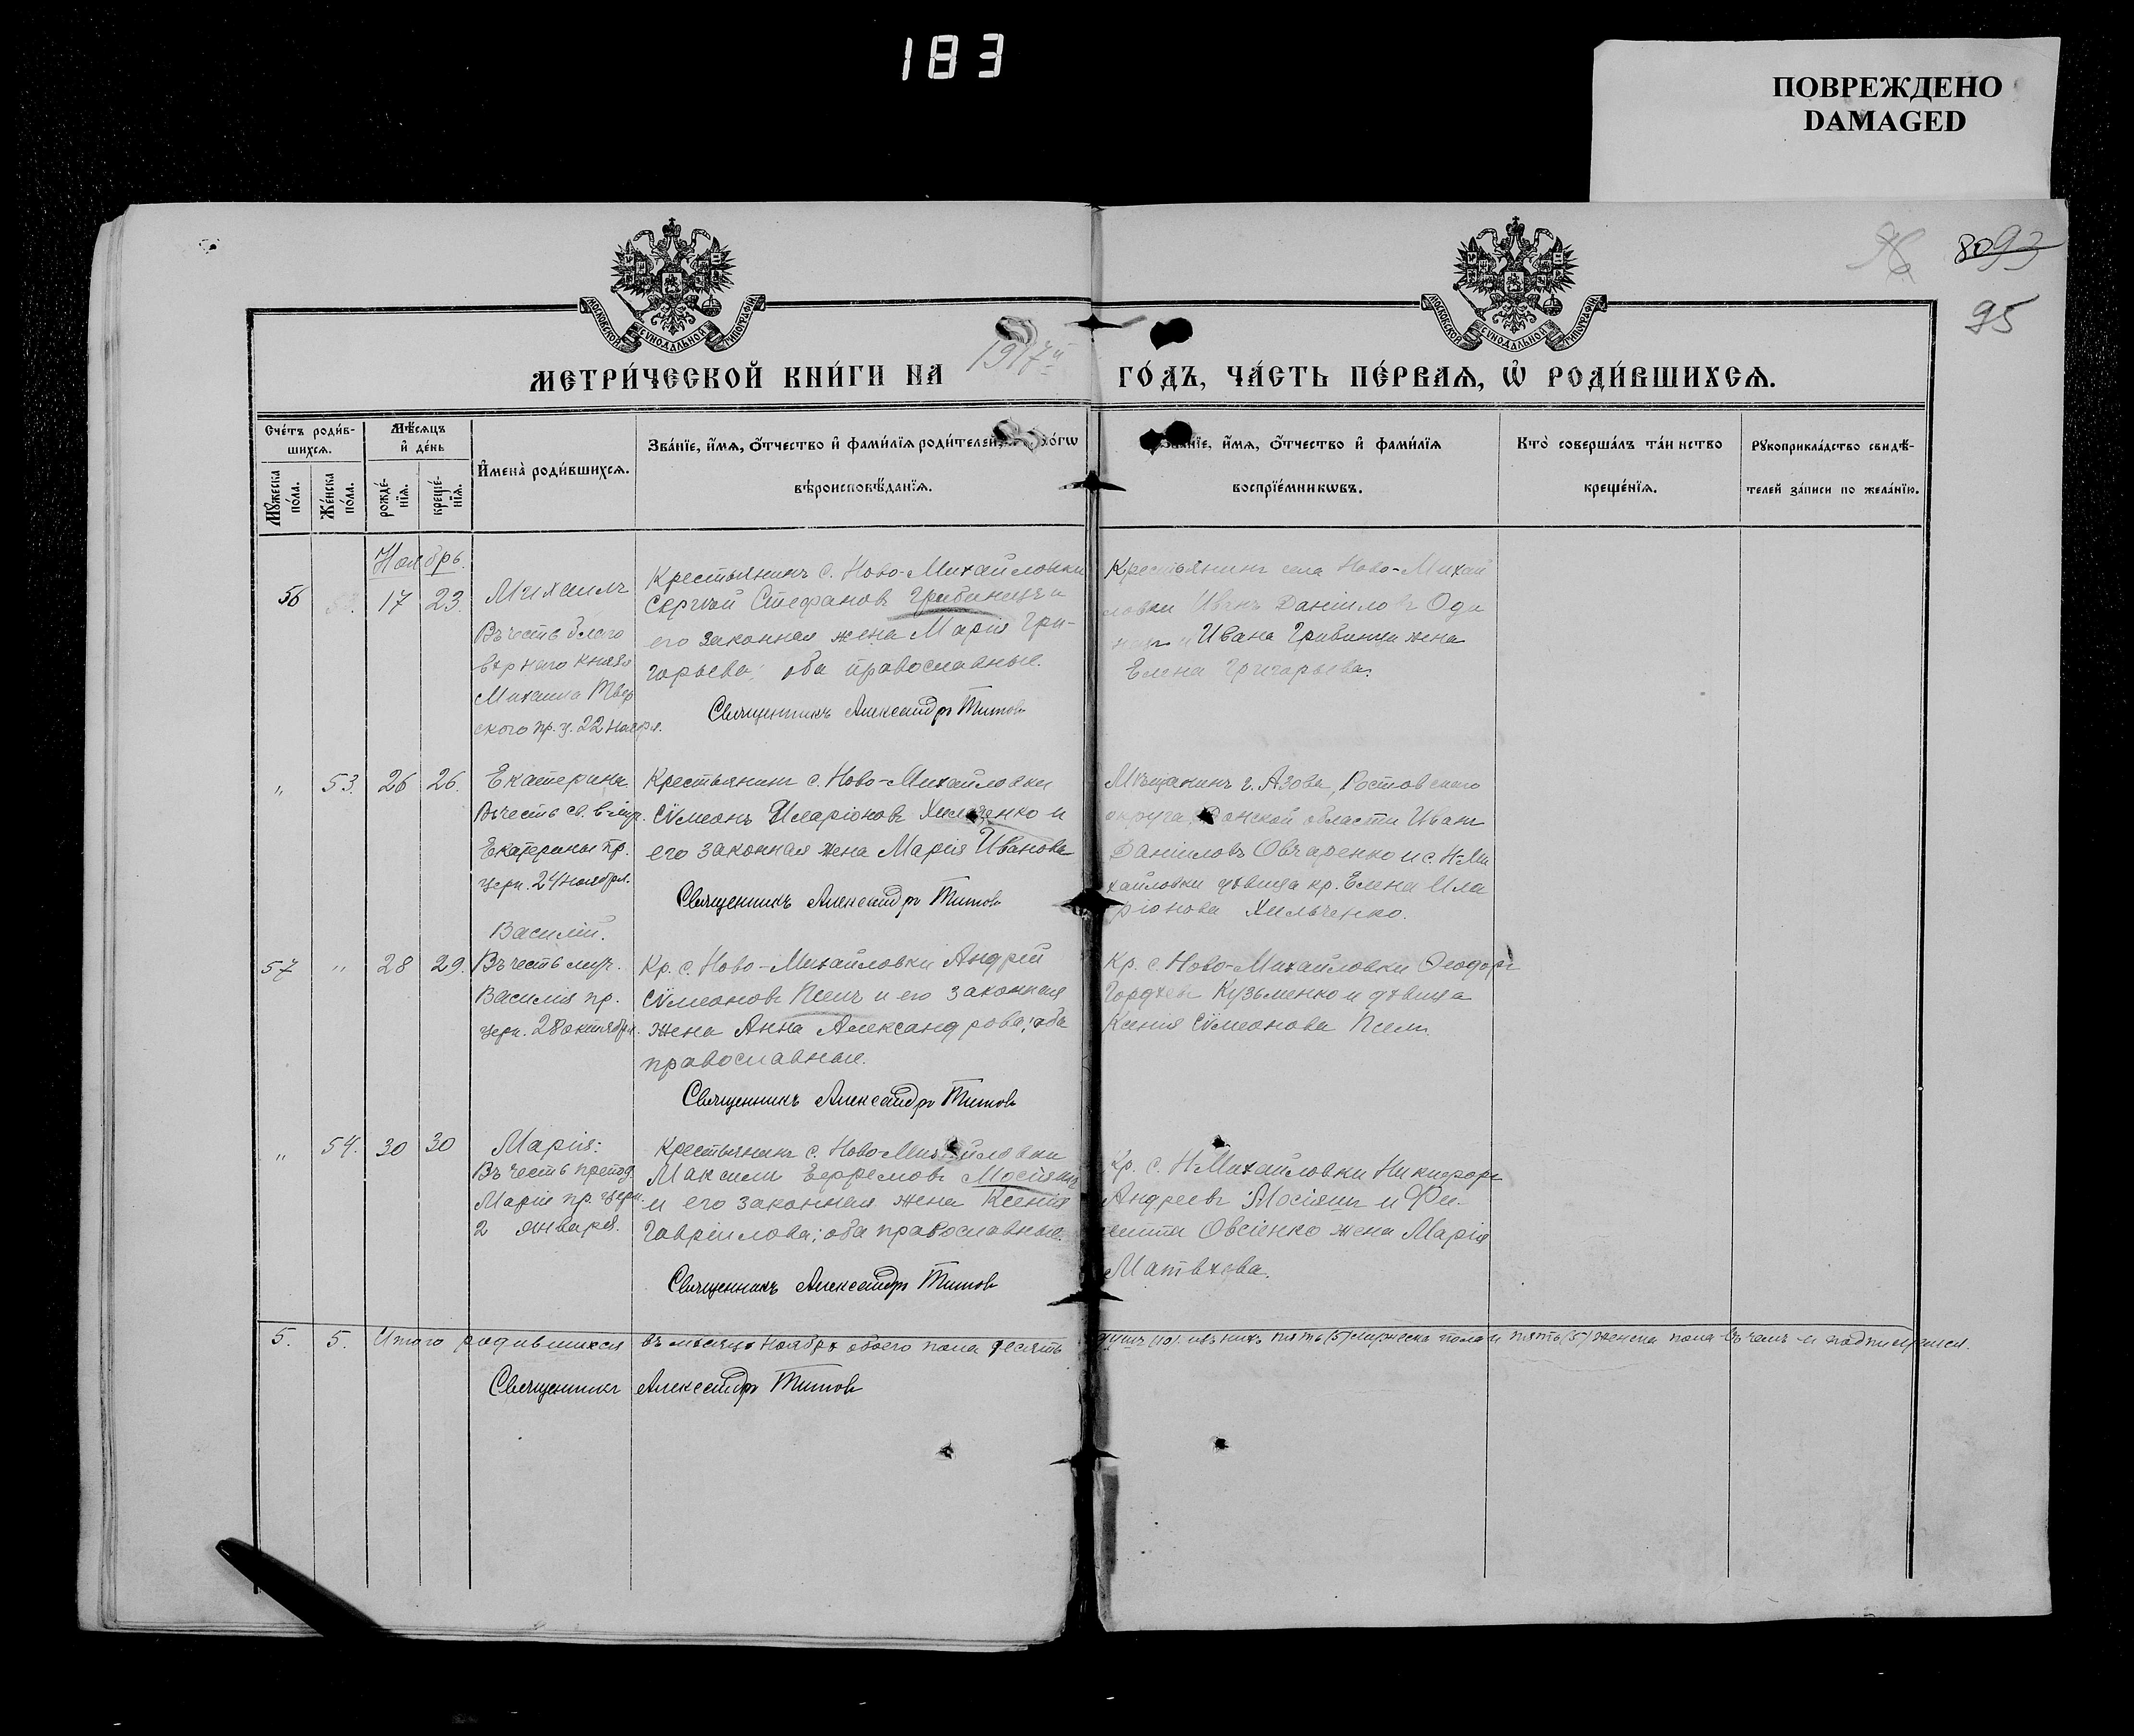 183
ПОВРЕЖДЕНО
DAMAGED
8093
95
МОСКОВСКОЙ СѴНОДАЛЬНОЙ ТИПОГРАФІИ
МОСКОВСКОЙ СѴНОДАЛЬНОЙ ТИПОГРАФІИ
МЕТРИ́ЧЕСКОЙ КНИ́ГИ НА 1917й ГО́ДЪ, ЧА́СТЬ ПЕ́РВАЯ, Ѡ РОДИ́ВШИХСЯ.
Сче́тъ роди́в-
шихся.
Мѣ́сяцъ
и҆ де́нь
Мꙋ́жеска по́ла.
Же́нска по́ла.
рожде́-нїя.
креще́-нїя.
И҆мена̀ роди́вшихся.
Зва́нїе, и҆́мя, ѻ҆́тчество и҆ фами́лїя роди́телей,
вѣроисповѣ́данїя.
и҆́мя, ѻ҆́тчество и҆ фами́лїя
воспрїе́мникѡвъ.
Кто̀ соверша́лъ та́инство
креще́нїя.
Рꙋкоприкла́дство свидѣ́-
телей за́писи по жела́нїю.
Ноябрь.
56 17 23.
Михаилъ
Въ честь благо
вѣрнаго князя
Михаила Твер
ского пр. ц. 22 ноября.
Крестьянинъ с. Ново-Михайловки
Сергѣй Стефановъ Грибиницъ и
его законная жена Марія Гри-
горьева; оба православные.
Священникъ Александръ Титовъ
Крестьянинъ села Ново-Михай
ловки Иванъ Даніиловъ Оди
нецъ и Ивана Грибиницы жена
Елена Григорьева.
" 53. 26 26.
Екатерина
Въ честь св. в-муч.
Екатерины пр.
церк. 24 ноября.
Крестьянинъ с. Ново-Михайловки
Сѵмеонъ Иларіоновъ Хильченко и
его законная жена Марія Иванова
Священникъ Александръ Титовъ
Мѣщанинъ г. Азова, Ростовскаго
округа, Донской области Иванъ
Даніиловъ Овчаренко и с. Н-Ми
хайловки дѣвица кр. Елена Ила
ріонова Хильченко.
57 " 28 29.
Василій.
Въ честь муч.
Василія пр.
церк. 28 октября.
Кр. с. Ново-Михайловки Андрей
Сѵмеоновъ Пселъ и его законная
жена Анна Александрова; оба
православные.
Священникъ Александръ Титовъ
Кр. с. Ново-Михайловки Ѳеодоръ
Гордѣевъ Кузьменко и дѣвица
Ксенія Сѵмеонова Пселъ.
" 54. 30 30
Марія:
Въ честь препод.
Маріи пр. церк.
2 января.
Крестьянинъ с. Ново-Михайловки
Максимъ Ефремовъ Мосіяшъ
и его законная жена Ксенія
Гавріилова; оба православные.
Священникъ Александръ Титовъ
Кр. с. Н-Михайловки Никифоръ
Андреевъ Мосіяшъ и Фи-
липпа Овсіенко жена Марія
Матвѣева.
5. 5. Итого родившихся въ мѣсяцѣ ноябрѣ обоего пола десять душъ (10) изъ нихъ пять (5) мужеска пола и пять (5) женска пола въ чемъ и подписуемся.
Священникъ Александръ Титовъ